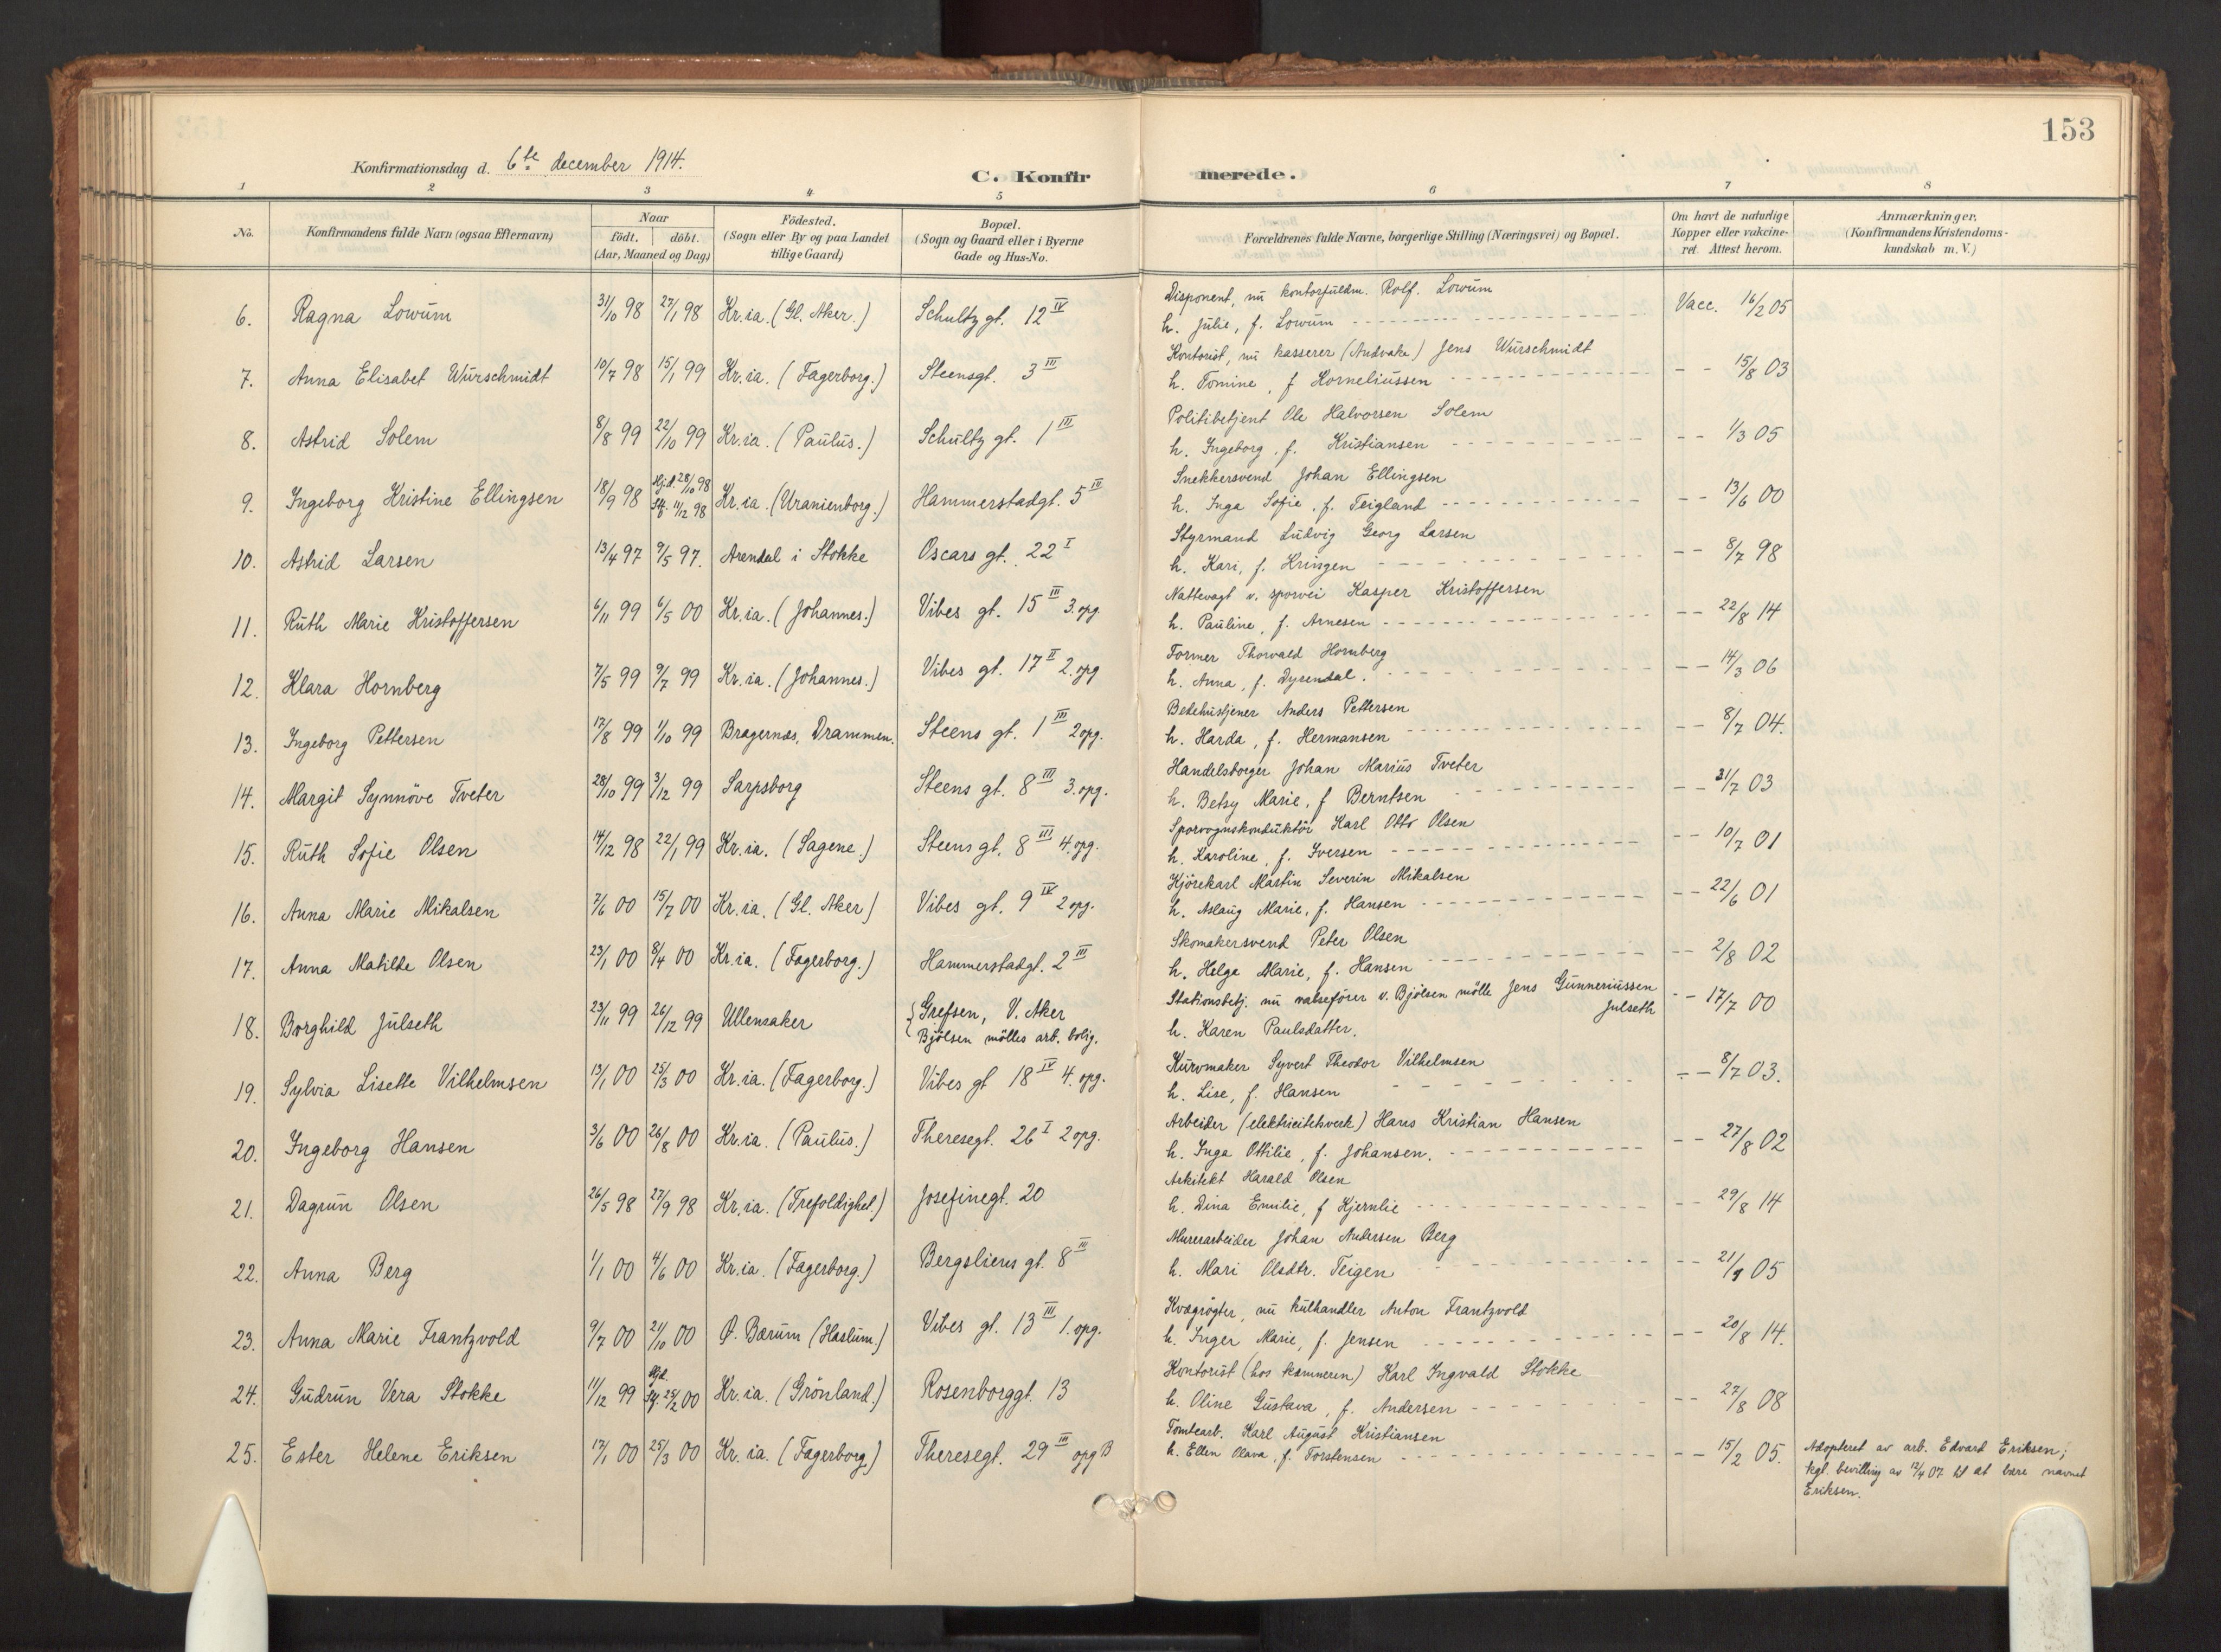 153
Konfirmationsdag d. 6te december 1914.
C. Konfirmerede.
1 2 3 4 5 6 7 8
No.
Konfirmandens fulde Navn (ogsaa Efternavn)
Naar
födt. döbt.
(Aar, Maaned og Dag)
Födested.
(Sogn eller By og paa Landet
tillige Gaard)
Bopæl.
(Sogn og Gaard eller i Byerne
Gade og Hus-No.
Forældrenes fulde Navne, borgerlige Stilling (Næringsvei) og Bopæl.
Om havt de naturlige
Kopper eller vakcine-
ret. Attest herom.
Anmærkninger.
(Konfirmandens Kristendoms-
kundskab m. V.)
6. Ragna Lowum 31/10 98 27/1 98 Kr.ia. (Gl. Aker.) Schultz gt. 12 IV Disponent, nu kontorfuldm. Rolf. Lowum
h. Julie, f. Lowum Vacc. 16/2 05
7. Anna Elisabet Würschmidt 10/7 98 15/1 99 Kr.ia. (Fagerborg.) Steensgt. 3 III Kontorist, nu kasserer (Andvake) Jens Würschmidt
h. Tomine, f Korneliussen - - 15/8 03
8. Astrid Solem 8/8 99 22/10 99 Kr.ia. (Paulus.) Schultz gt. 1 III Politibetjent Ole Halvorsen Solem
h. Ingeborg, f. Kristiansen - - 1/3 05
9. Ingeborg Kristine Ellingsen 18/9 98 Hj.d. 28/10 98
Stf. 11/12 98 Kr.ia. (Uranienborg.) Hammerstadgt. 5 IV Snekkersvend Johan Ellingsen
h. Inga Sofie, f. Teigland - - 13/6 00
10. Astrid Larsen 13/4 97 9/5 97. Arendal i Stokke Oscars gt. 22 I Styrmand Ludvig Georg Larsen
h. Kari, f. Kringen - - 8/7 98
11. Ruth Marie Kristoffersen 6/11 99 6/5 00 Kr.ia. (Johannes.) Vibes gt. 15 III 3. opg. Nattevagt v. sporvei Kasper Kristoffersen
h. Pauline, f. Arnesen - - 22/8 14
12. Klara Hornberg 7/5 99 9/7 99 Kr.ia. (Johannes.) Vibes gt. 17 II 2. opg Former Thorvald Hornberg
h. Anna, f. Dyrendal. - - 14/3 06
13. Ingeborg Pettersen 17/8 99 1/10 99 Bragernæs, Drammen. Steens gt. 1 III 2 opg. Bedehustjener Anders Pettersen
h. Harda, f. Hermansen - - 8/7 04.
14. Margit Synnöve Tveter 28/10 99 3/12 99 Sarpsborg Steens gt. 8 III 3. opg. Handelsborger Johan Marius Tveter
h. Betsy Marie, f Berntsen - - 31/7 03
15. Ruth Sofie Olsen 14/12 98 22/1 99 Kr.ia. (Sagene.) Steens gt. 8 III 4. opg. Sporvognskonduktör Karl Otto Olsen
h. Karoline, f. Iversen - - 10/7 01
16. Anna Marie Mikalsen 7/6 00 15/7 00 Kr.ia. (Gl. Aker) Vibes gt. 9 IV 2 opg. Kjörekarl Martin Severin Mikalsen
h. Aslaug Marie, f. Hansen - - 22/6 01
17. Anna Matilde Olsen 23/1 00 8/4 00 Kr.ia. (Fagerborg.) Hammerstadgt. 2 III Skomakersvend Peter Olsen
h. Helga Marie, f. Hansen - - 2/8 02
18. Borghild Julseth 23/11 99 26/12 99 Ullensaker Grefsen, V. Aker
Bjölsen mölles arb. bolig. Stationsbetj. nu valsefører v. Bjölsen mölle Jens Gunneriussen
Julseth
h. Karen Paulsdatter. - - 17/7 00
19. Sylvia Lisette Vilhelmsen 13/1 00 25/3 00 Kr.ia. (Fagerborg.) Vibes gt 18 IV 4. opg. Kurvmaker Syvert Theodor Vilhelmsen
h. Lise, f. Hansen - - 8/7 03.
20. Ingeborg Hansen 3/6 00 26/8 00 Kr.ia. (Paulus.) Theresegt. 26 I 2 opg. Arbeider (elektricitetsverk) Hans Kristian Hansen
h. Inga Ottilie, f. Johansen. - - 27/8 02
21. Dagrun Olsen 26/5 98 27/9 98 Kr.ia. (Trefoldighet.) Josefinegt. 20 Arkitekt Harald Olsen
h. Dina Emilie, f Kjernlie - - 29/8 14
22. Anna Berg 1/1 00 4/6 00 Kr.ia. (Fagerborg.) Bergsliens gt. 8 III Murerarbeider Johan Andersen Berg
h. Mari Olsdtr. Teigen - - 21/9 05
23. Anna Marie Frantzvold 9/7 00 21/10 00 Ø. Bærum (Haslum.) Vibes gt. 13 III 1. opg. Kvægrögter, nu kulhandler Anton Frantzvold
h. Inger Marie, f. Jensen - - 20/8 14.
24. Gudrun Vera Stokke 11/12 99 Hjd.
Stf. 25/2 00 Kr.ia. (Grönland.) Rosenborggt. 13 Kontorist (hos kæmneren) Karl Ingvald Stokke
h. Oline Gustava, f. Andersen - - 27/8 08
25. Ester Helene Eriksen 17/1 00 25/3 00 Kr.ia. (Fagerborg) Theresegt. 29 III opg B Tomtearb. Karl August Kristiansen
h. Ellen Olava, f. Torstensen - - 15/2 05. Adopteret av arb. Edvard Eriksen;
kgl. bevilling av 12/4 07 til at bære navnet
Eriksen.